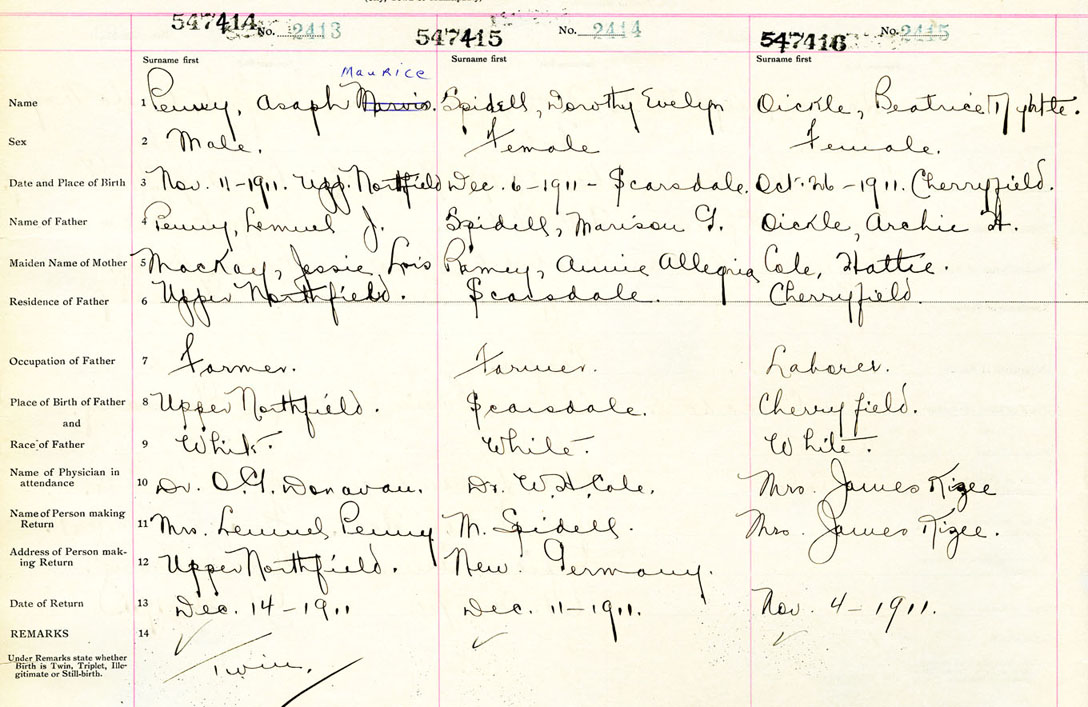 547414 No. 2413 547415 No. 2414 547416 No. 2415
Surname first Surname first Surname first
Maurice
Name 1 Penny, Asaph Marvis. Spidell, Dorothy Evelyn Oickle, Beatrice Myrtle.
Sex 2 Male. Female Female.
Date and Place of Birth 3 Nov. 11-1911. Upp. Northfield Dec. 6-1911 - Scarsdale. Oct. 26-1911. Cherryfield.
Name of Father 4 Penny, Lemuel J. Spidell, Marison G. Oickle, Archie H.
Maiden Name of Mother 5 MacKay, Jessie Lois Ramey, Annie Allegria Cole, Hattie.
Residence of Father 6 Upper Northfield. Scarsdale. Cherryfield.
Occupation of Father 7 Farmer. Farmer. Laborer.
Place of Birth of Father 8 Upper Northfield. Scarsdale. Cherryfield.
and
Race of Father 9 White. White. White.
Name of Physician in
attendance 10 Dr. O.G. Donovan. Dr. W.H. Cole. Mrs. James Kizee
Name of Person making
Return 11 Mrs. Lemuel Penny M. Spidell. Mrs. James Kizee.
Address of Person mak-
ing Return 12 Upper Northfield. New Germany.
Date of Return 13 Dec. 14-1911 Dec. 11-1911. Nov. 4-1911.
REMARKS 14
Under Remarks state whether
Birth is Twin, Triplet, Ille-
gitimate or Still-birth.
Twin.